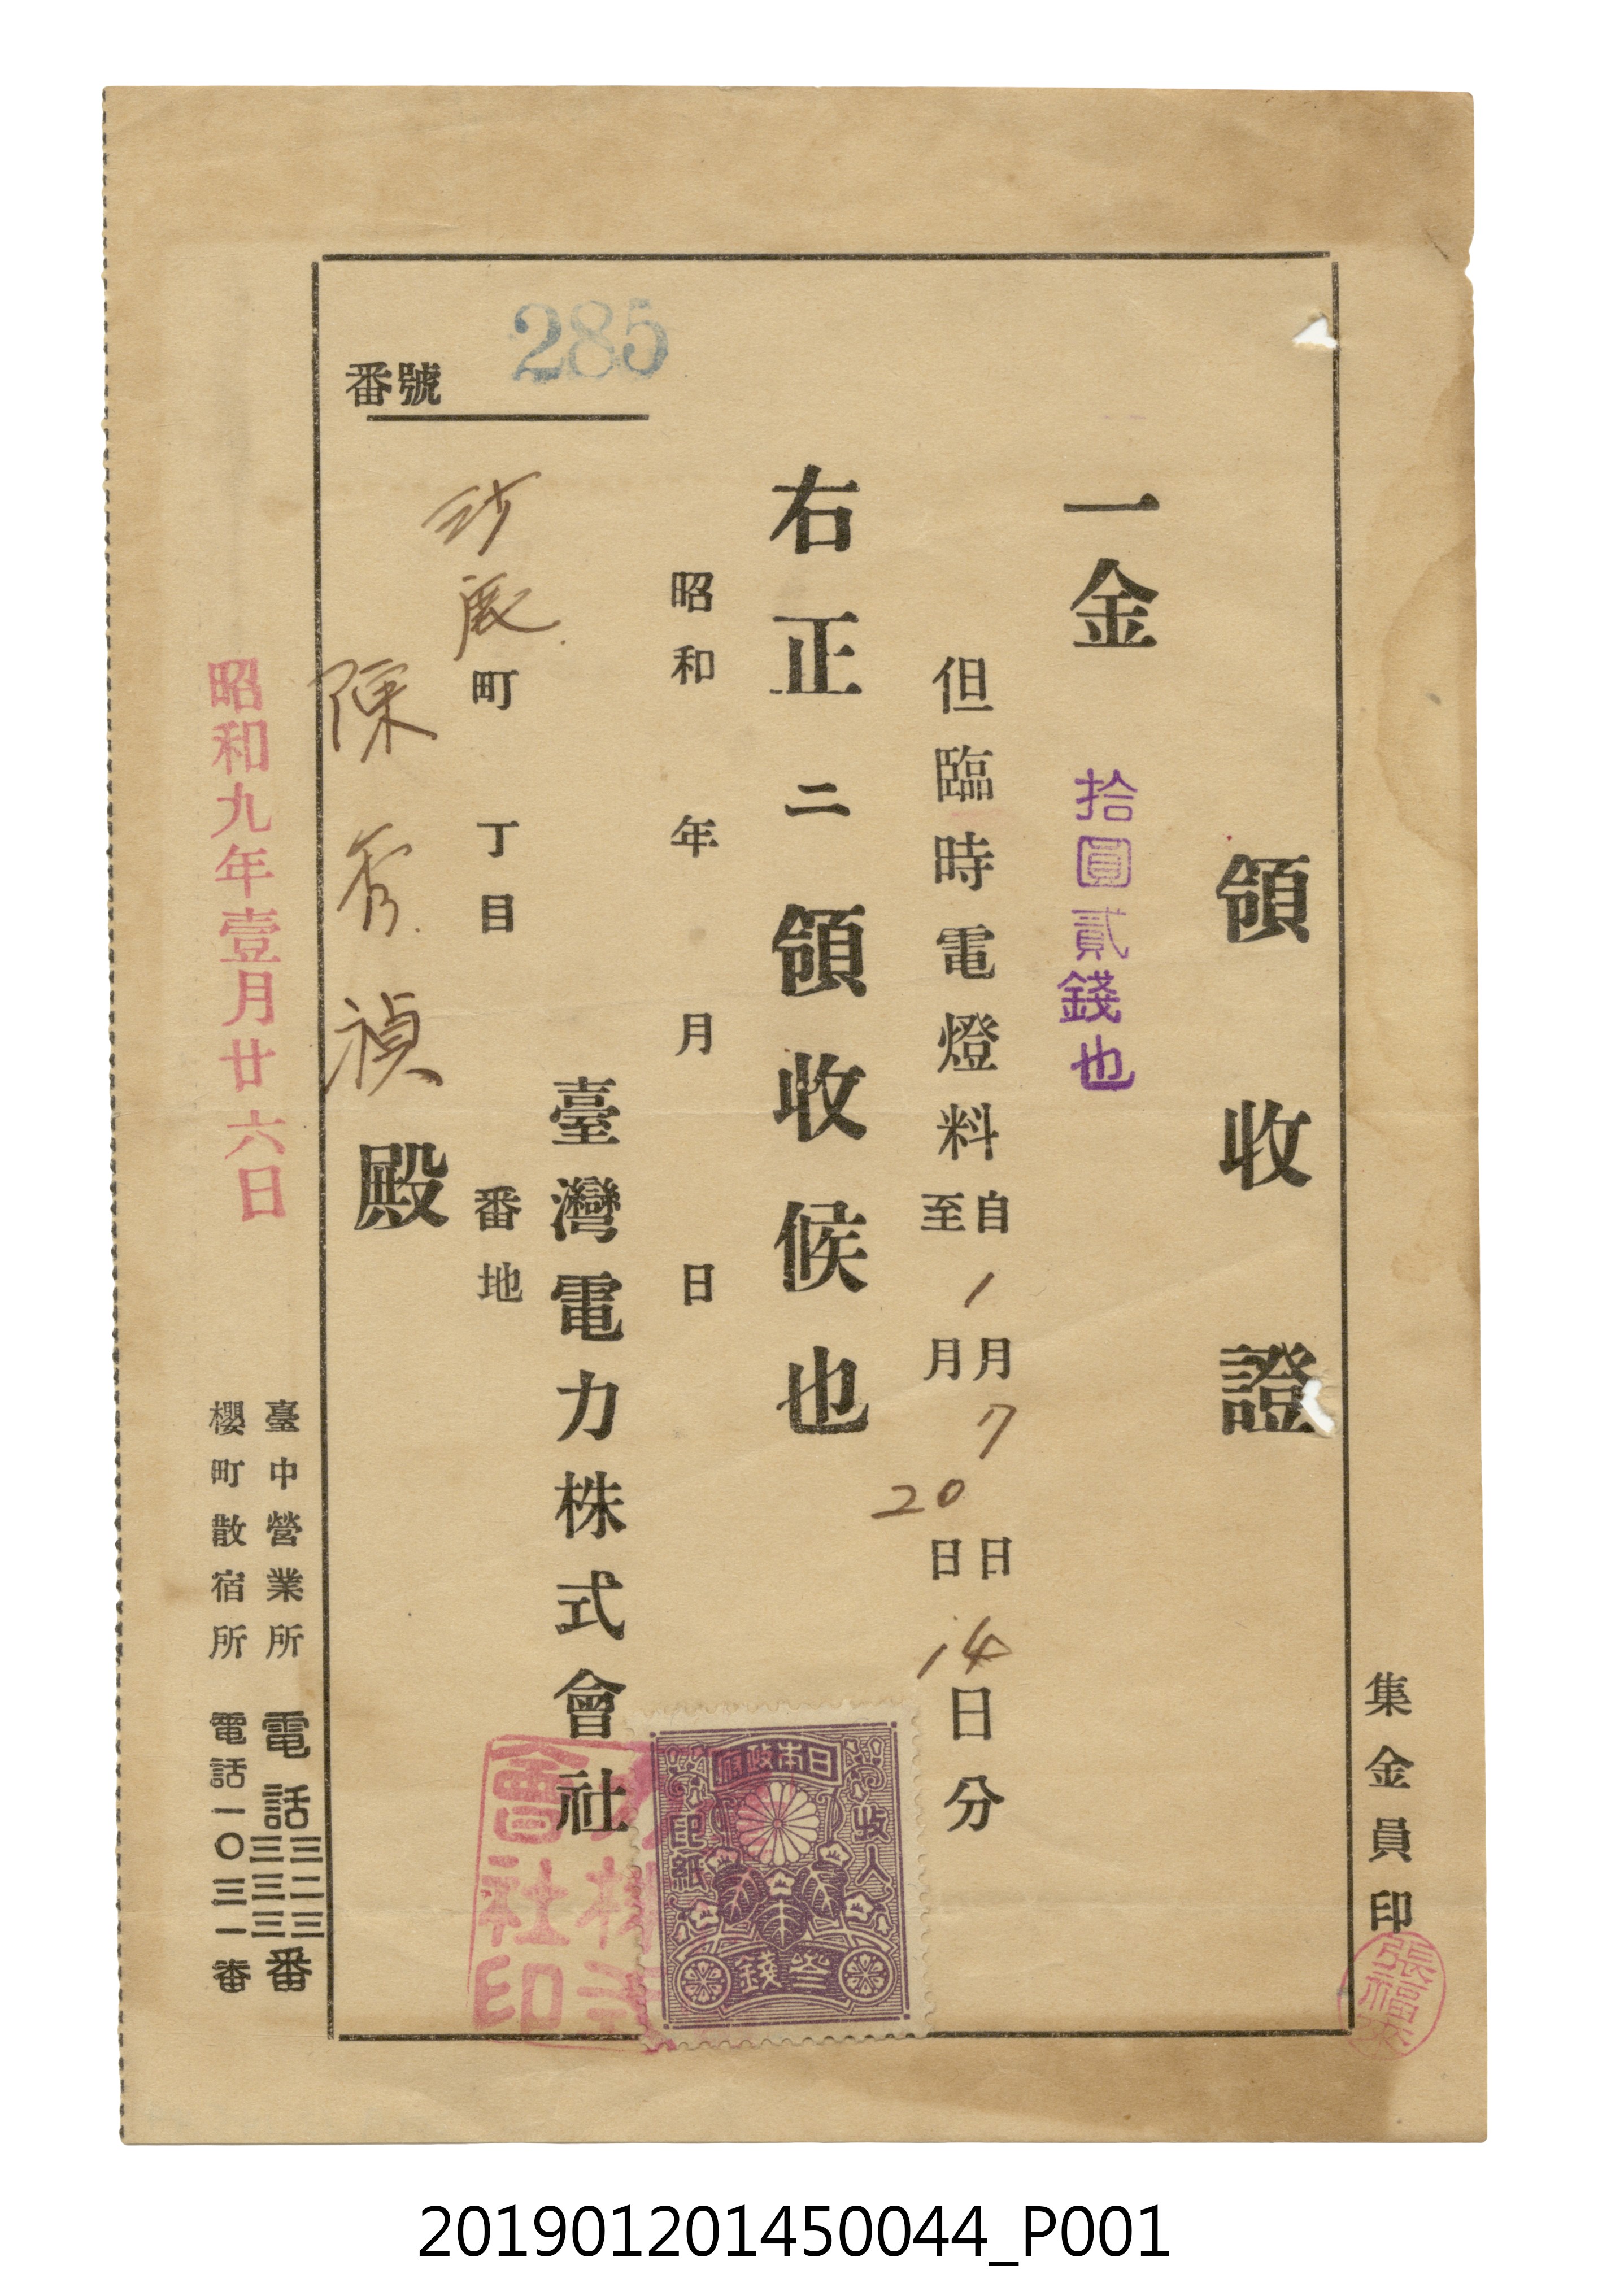 集金員印
張福來
領收證
一金 拾圓貳錢也
但臨時電燈料 自1月7日 至 月20日 14日分
右正ニ領收候也
昭和 年 月 日
臺灣電力株式會社
會社印
日本政府
收入印紙
參錢
町 丁目 番地
陳 殿
番號 285
昭和九年壹月廿六日
臺中營業所 電話 三二三 三三三 番
櫻町散宿所 電話一〇三一番
201901201450044_P001